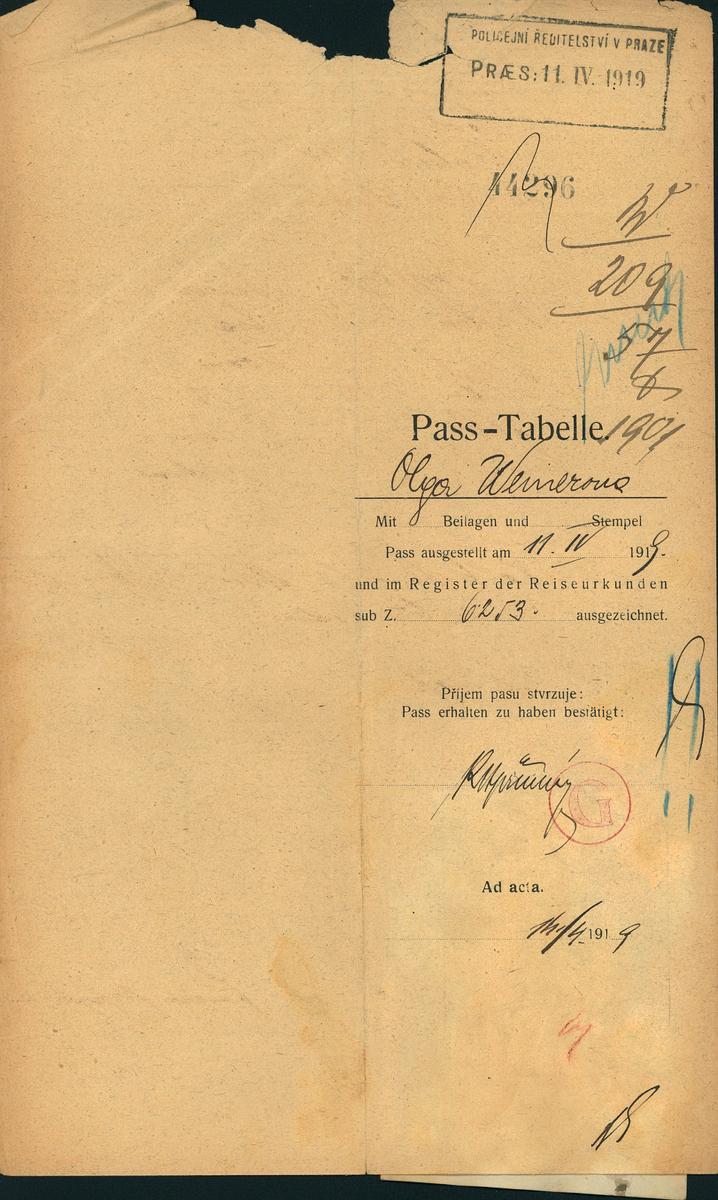 POLICEJNÍ ŘEDITELSTVÍ V PRAZE
PRÆS: 11. IV. 1919
44296
W
209
57
8
1901
Pass-Tabelle.
Olga Wernerova
Mit Beilagen und Stempel
Pass ausgestellt am 11. IV 1919.
und im Register der Reiseurkunden
sub Z. 6253. ausgezeichnet.
Příjem pasu stvrzuje:
Pass erhalten zu haben bestätigt:
G
Ad acta.
1919